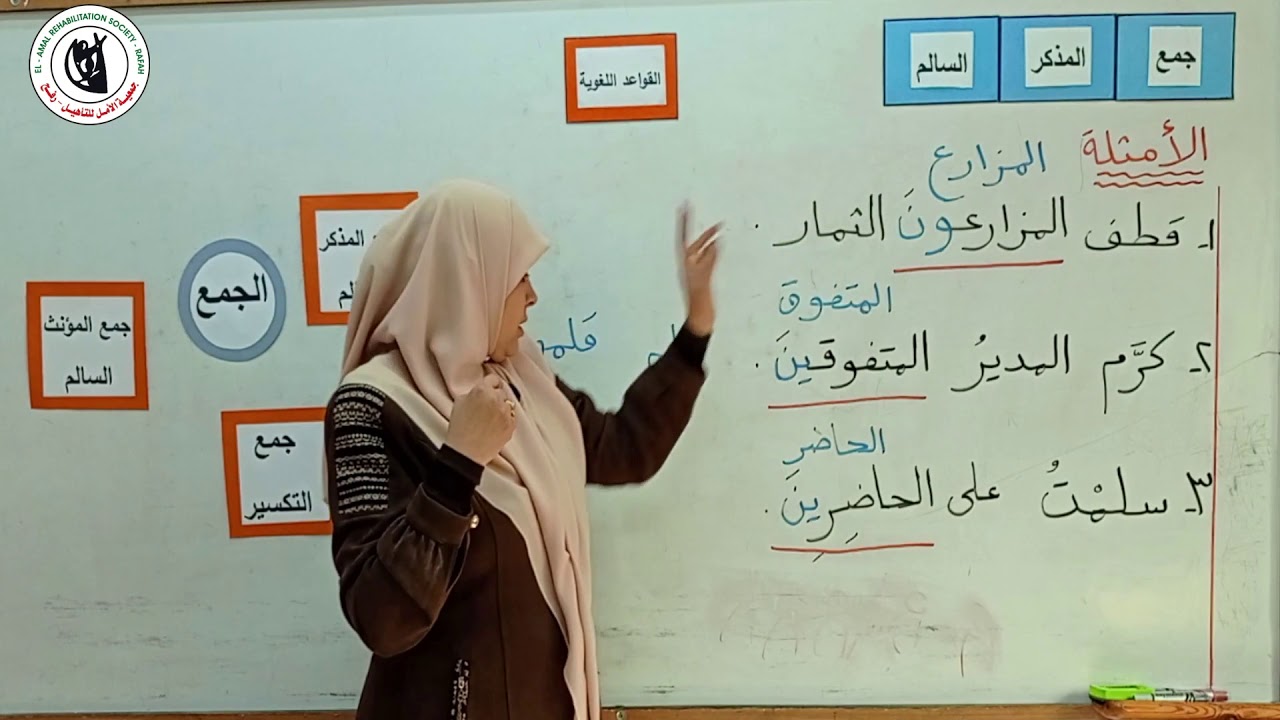 EL - AMAL REHABILITATION SOCIETY - RAFAH
جمعية الأمل للتأهيل - رفح
القواعد اللغوية
جمع المذكر السالم
الأمثلة
المزارع
١ـ قطف المزارعونَ الثمار .
المتفوق
٢ـ كرَّم المديرُ المتفوقينَ .
الحاضر
٣ـ سلمْتُ على الحاضِرِينَ .
المذكر
الجمع
جمع المؤنث
السالم
جمع
التكسير